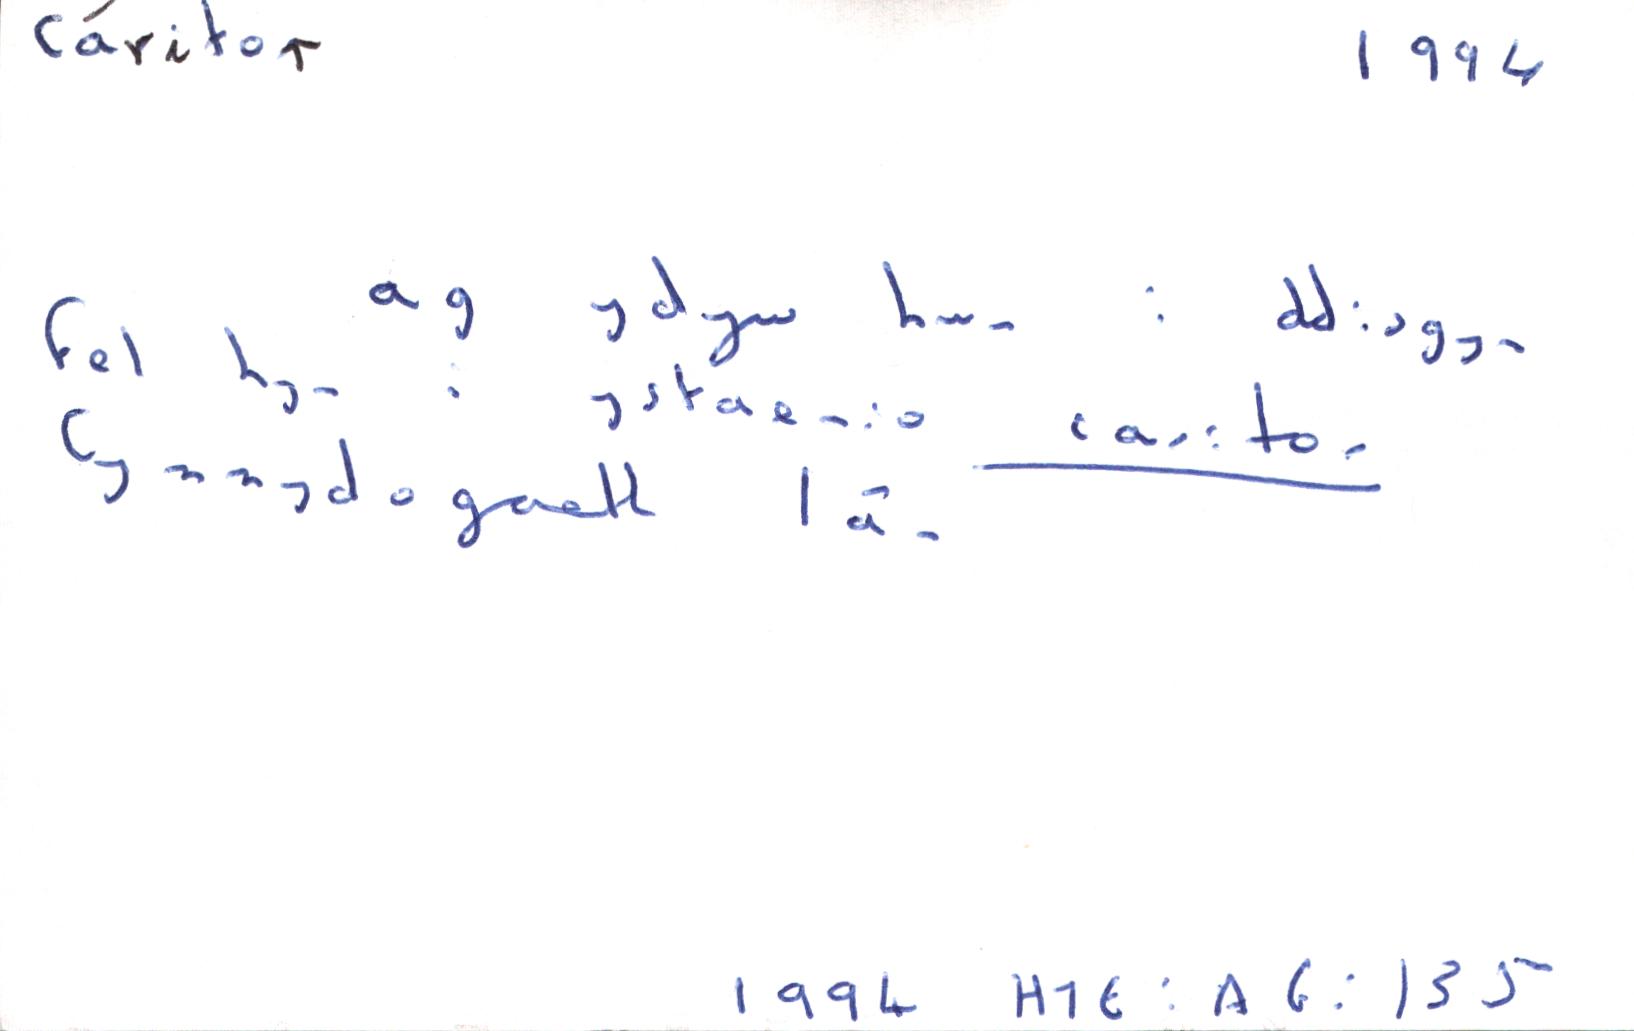 cáritor 1994
ag ydyw hwn i ddisgyn
fel hyn i ystaenio caritor
Cymmydogaeth lân
1994 H1E: AG: 135